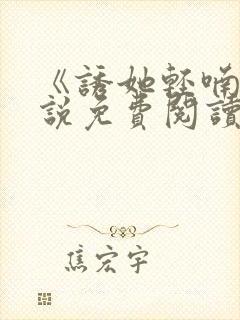 《誘她輕喃
說免費閱讀
焦宏宇